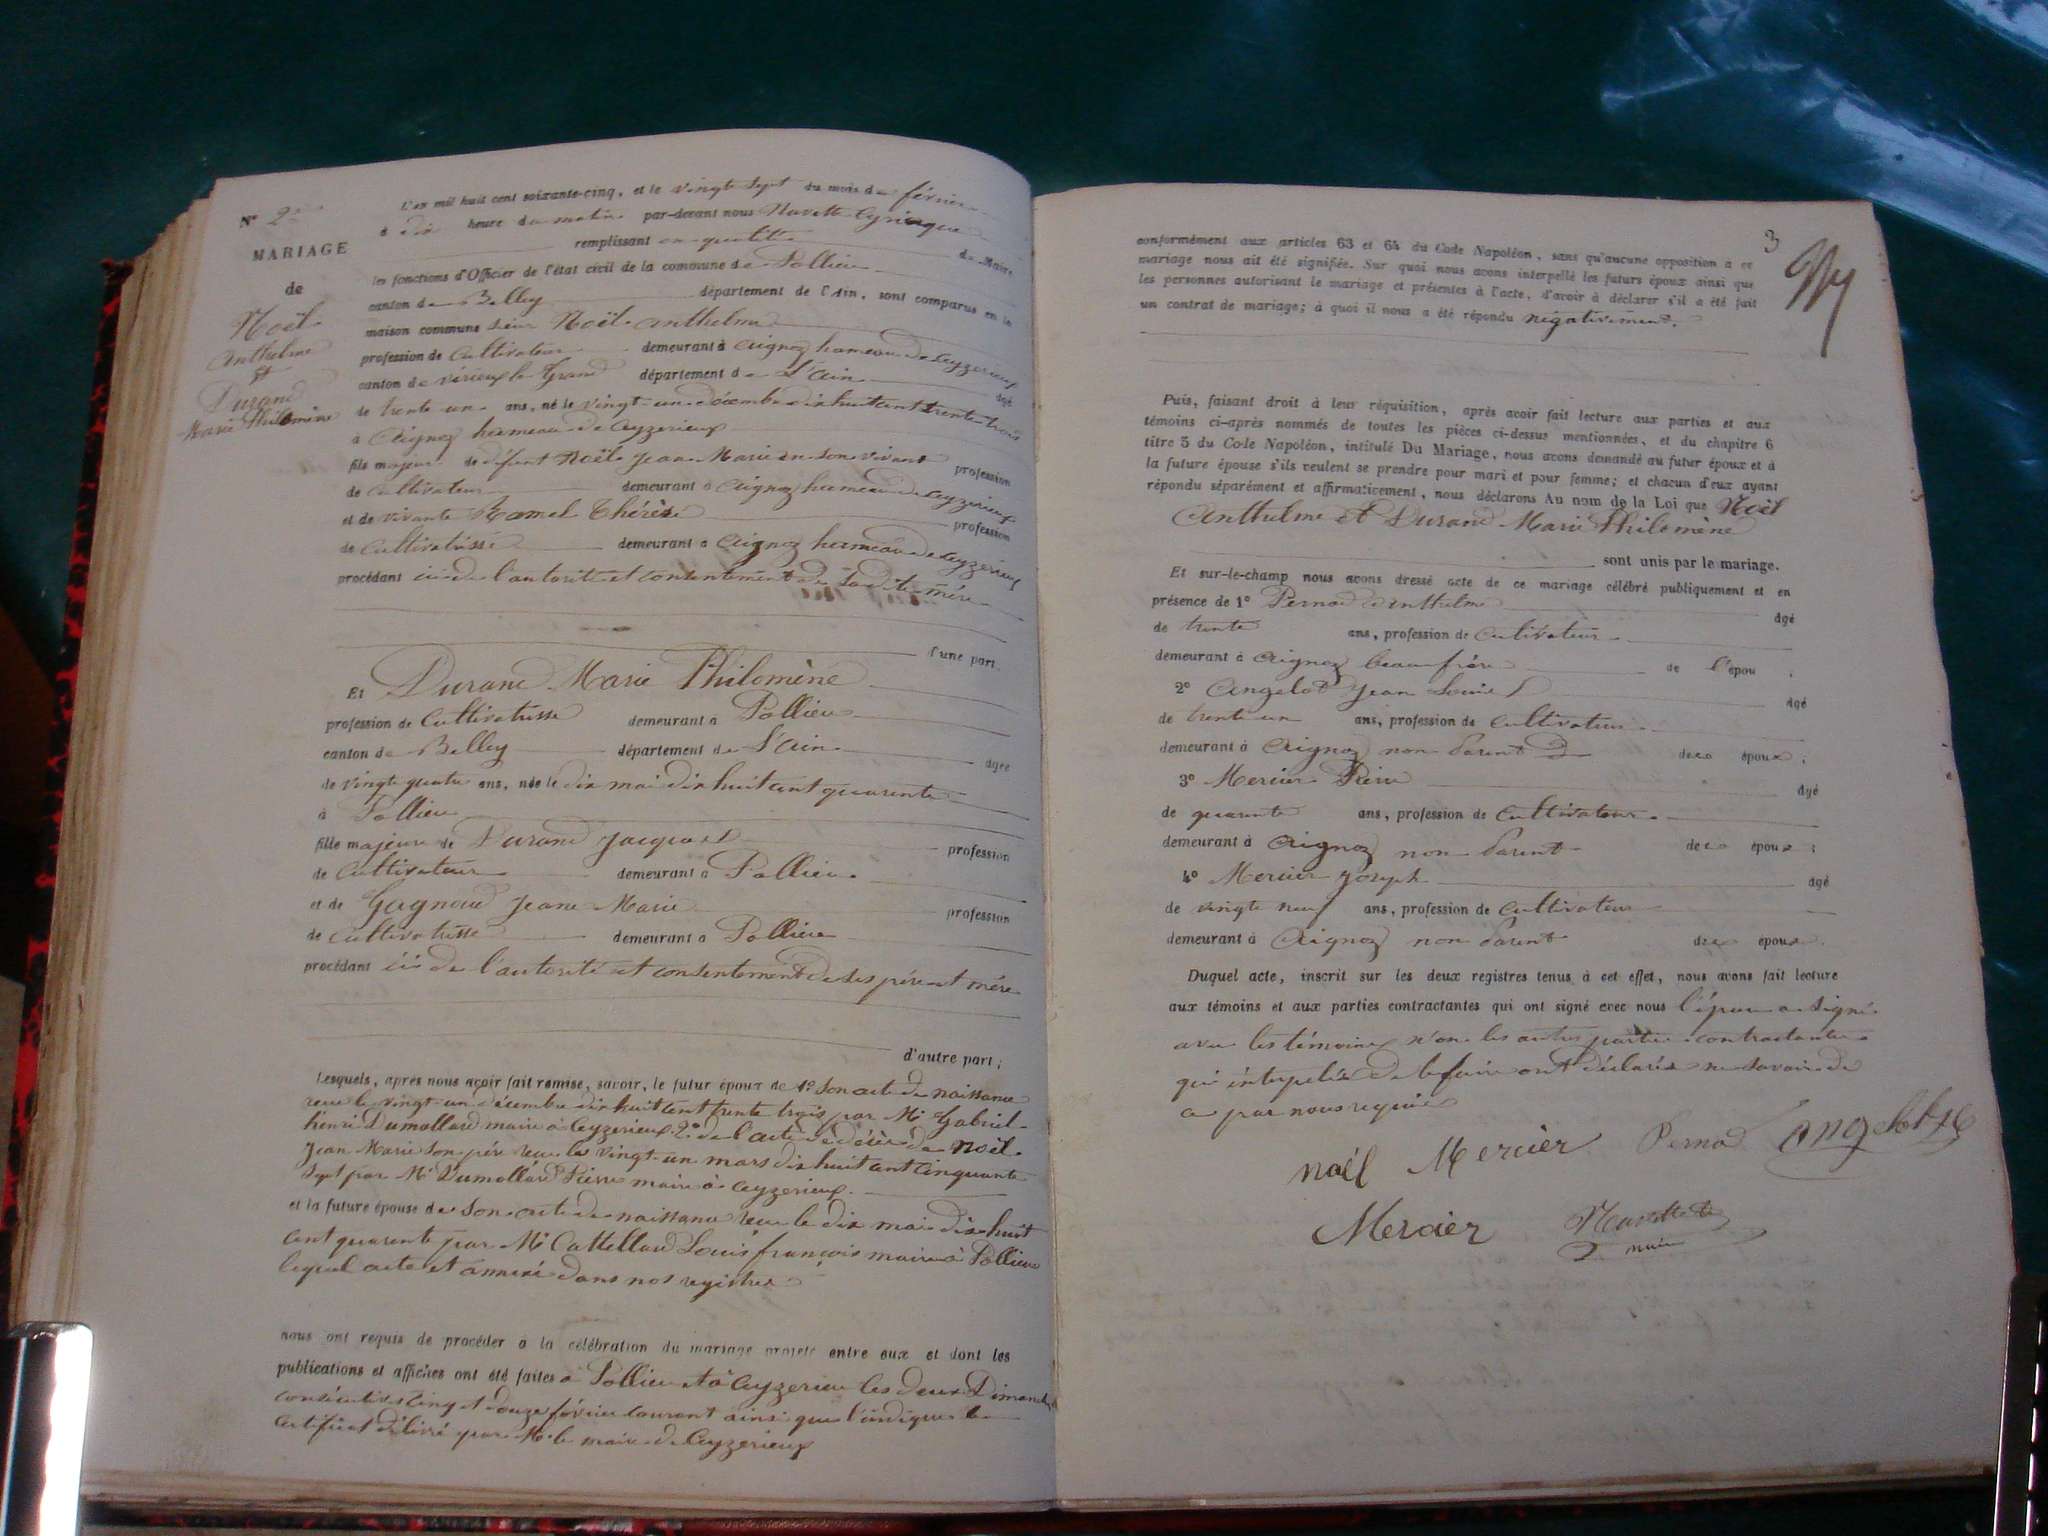 N° 2
MARIAGE
de
Noël
Anthelme
et
Durand
Marie Philomène
L'an mil huit cent soixante-cinq, et le vingt Sept du mois de février
à dix heure du matin par-devant nous Navette Cyriaque
remplissant en qualité de Maire
les fonctions d'Officier de l'état civil de la commune de Pollieu
canton de Belley département de l'Ain, sont comparus en la
maison commune sieur Noël Anthelme
profession de Cultivateur demeurant à Aignoz hameau de Ceyzerieux
canton de virieux le Grand département de L'Ain âgé
de trente un ans, né le vingt-un décembre dix huit cent trente trois
à Aignoz hameau de Ceyzerieux
fils majeur de défunt Noël Jean Marie en son vivant profession
de Cultivateur demeurant à Aignoz hameau de Ceyzerieux
et de vivante Ramel Thérèse profession
de Cultivatrisse demeurant à Aignoz hameau de Ceyzerieux
procédant ici de l'autorité et consentement de Sa dite mère
d'une part.
Et Durand Marie Philomène
profession de Cultivatrisse demeurant à Pollieu
canton de Belley département de L'Ain âgée
de vingt quatre ans, née le dix mai dix huit cent quarente
à Pollieu
fille majeure de Durand Jacques profession
de Cultivateur demeurant à Pollieu
et de Gagnoud Jeane Marie profession
de Cultivatrisse demeurant à Pollieu
procédant ici de l'autorité et consentement de ses père et mère
d'autre part;
Lesquels, après nous avoir fait remise, savoir, le futur époux de 1° Son acte de naissance
reçu le vingt-un décembre dix huit cent trente trois par Mr Gabriel
henri Dumollard maire à Ceyzerieux 2° de l'acte de décès de Noël
Jean Marie Son père reçu le vingt-un mars dix huit cent cinquante
Sept par Mr Dumollard Pierre maire à Ceyzerieux.
et la future épouse de Son acte de naissance reçu le dix mai dix huit
cent quarente par Mr Cattelland Louis françois maire à Pollieu
lequel acte et annexé dans nos registres
nous ont requis de procéder à la célébration du mariage projeté entre eux et dont les
publications et affiches ont été faites à Pollieu et à Ceyzerieu les deux Dimanches
consécutives Cinq et douze février courant ainsi que l'indique le
certificat délivré par Mr le maire de Ceyzerieux
3
conformément aux articles 63 et 64 du Code Napoléon, sans qu'aucune opposition à ce
mariage nous ait été signifiée. Sur quoi nous avons interpellé les futurs époux ainsi que
les personnes autorisant le mariage et présentes à l'acte, d'avoir à déclarer s'il a été fait
un contrat de mariage; à quoi il nous a été répondu négativement.
Puis, faisant droit à leur réquisition, après avoir fait lecture aux parties et aux
témoins ci-après nommés de toutes les pièces ci-dessus mentionnées, et du chapitre 6
titre 5 du Code Napoléon, intitulé Du Mariage, nous avons demandé au futur époux et à
la future épouse s'ils veulent se prendre pour mari et pour femme; et chacun d'eux ayant
répondu séparément et affirmativement, nous déclarons Au nom de la Loi que Noël
Anthelme et Durand Marie Philomène
sont unis par le mariage.
Et sur-le-champ nous avons dressé acte de ce mariage célébré publiquement et en
présence de 1° Pernod Anthelme âgé
de trente ans, profession de Cultivateur
demeurant à Aignoz beau frère de l'épou ;
2° Angelot Jean Louis âgé
de trente un ans, profession de Cultivateur
demeurant à Aignoz non Parent des époux;
3° Mercier Pierre âgé
de quarente ans, profession de Cultivateur
demeurant à Aignoz non Parent des époux;
4° Mercier Joseph âgé
de vingt neuf ans, profession de Cultivateur
demeurant à Aignoz non Parent des époux.
Duquel acte, inscrit sur les deux registres tenus à cet effet, nous avons fait lecture
aux témoins et aux parties contractantes qui ont signé avec nous l'époux a Signé
avec les témoins non les autres parties contractantes
qui interpelés de le faire ont déclarés ne Savoir de
ce par nous requis
noël Mercier Pernod Angelot
Mercier Navette
maire